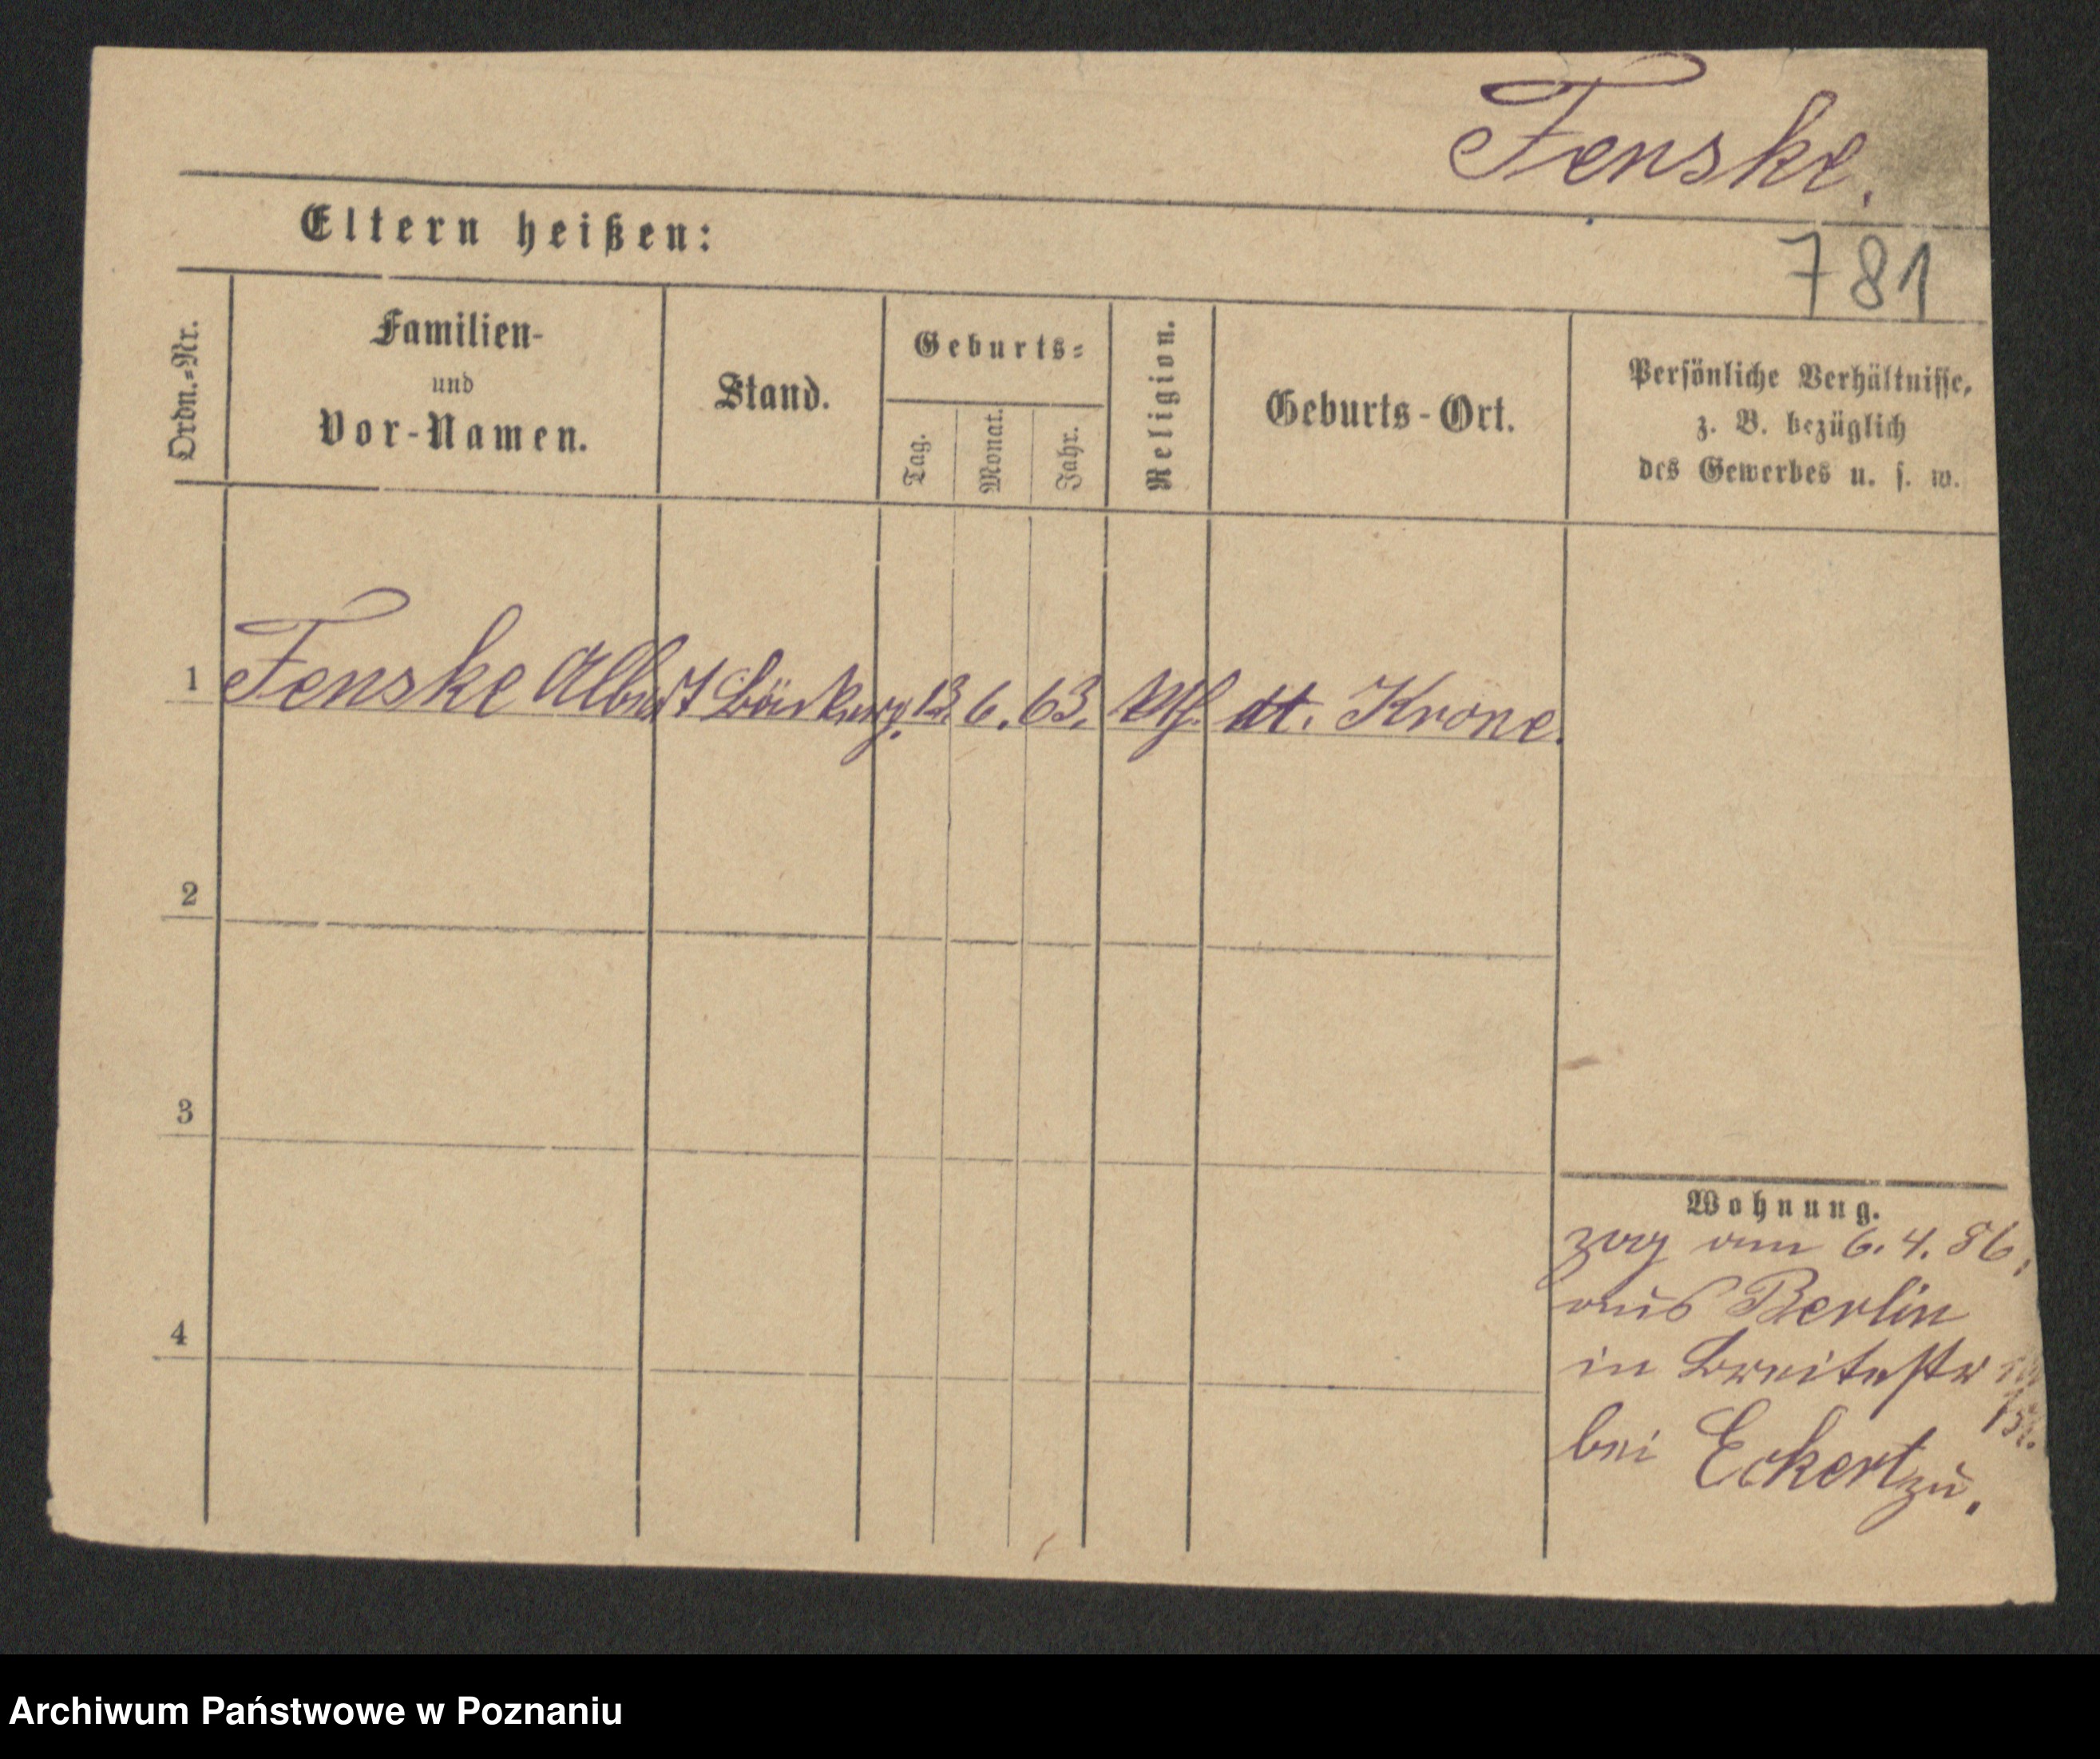 Fenske.
Eltern heißen:
781
Ordn.-Nr.
Familien-
und
Vor-Namen.
Stand.
Geburts-
Tag.
Monat.
Jahr.
Religion.
Geburts-Ort.
Persönliche Verhältnisse,
z. B. bezüglich
des Gewerbes u. s. w.
1 Fenske Albert 6. 63. dt. Krone.
2
3
4
Wohnung.
zog am 6. 4. 86.
aus Berlin
in Breitestr
bei Eckert zu.
Archiwum Państwowe w Poznaniu